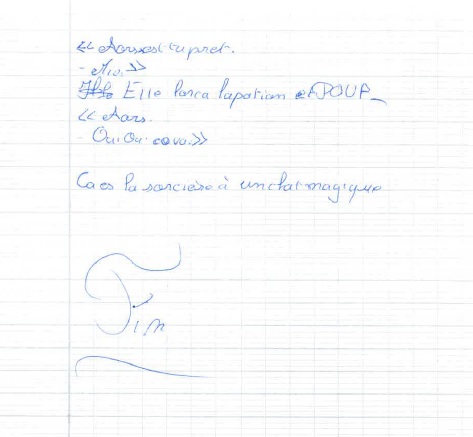 « Aors est tu pret.
- Mio. »
Elle lança la potion et POUF_
« Aors.
- Oui Oui. ça va. »
Ca es la sorcière à un chat magique
Fin